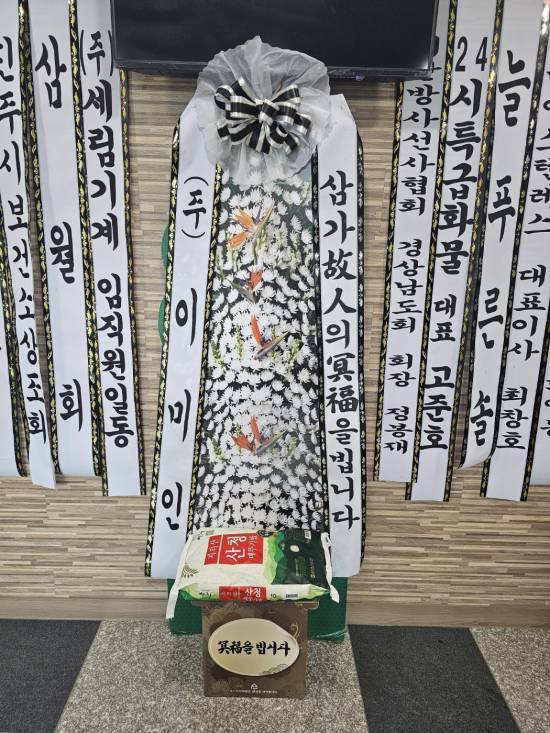 진주시보건소상조회
삼월회
(주)세림기계 임직원일동
(주)이미인
삼가故人의冥福을빕니다
방사선사협회 경상남도회 회장 정봉재
24시특급화물 대표 고준호
늘푸른솔
스텐레스 대표이사 최창호
지리산
산청
메뚜기쌀
산청
10
冥福을 빕니다